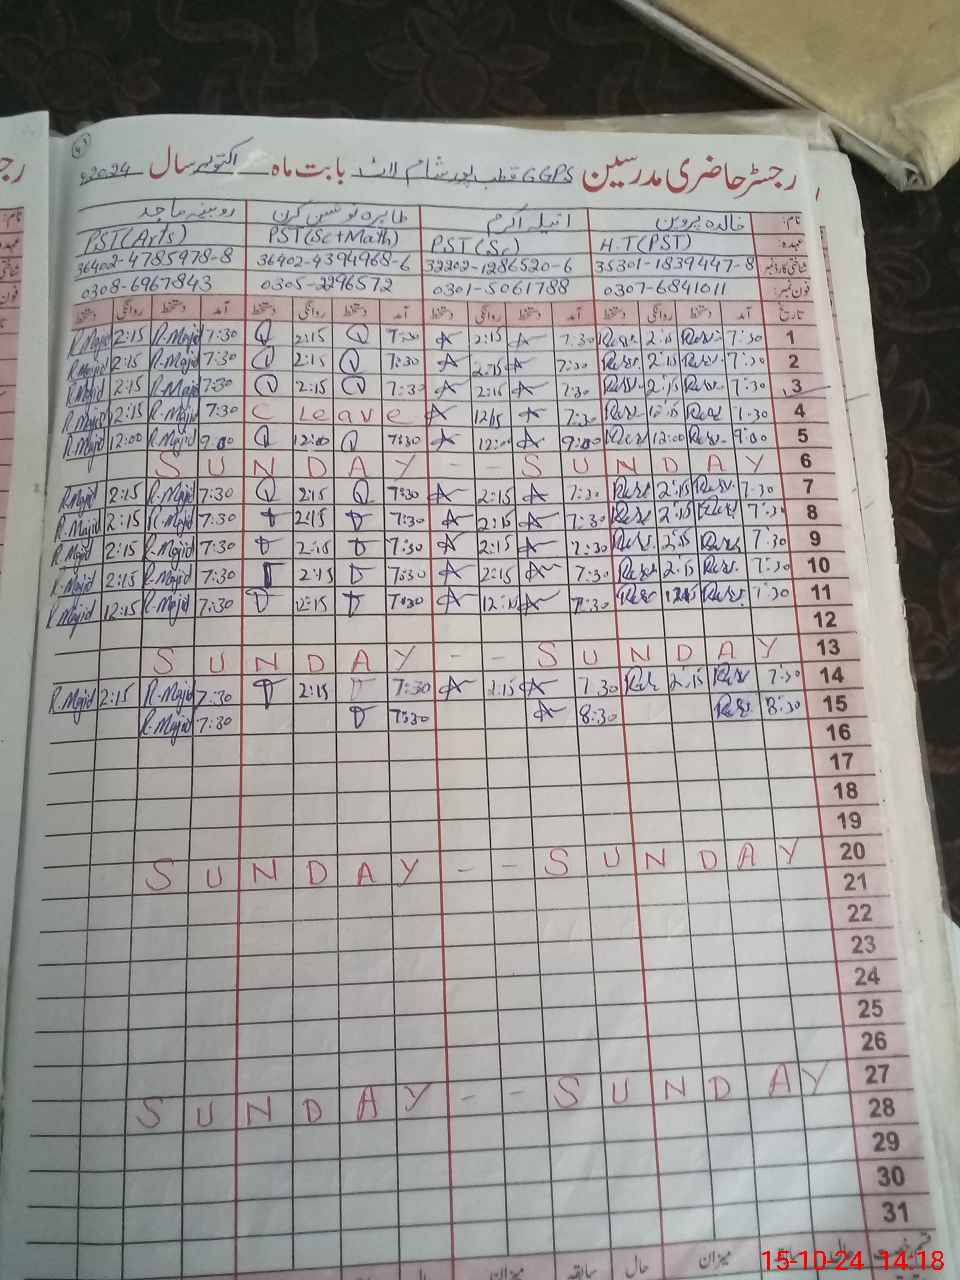 رجسٹر حاضری مدرسین GGPS قطب پور شام لاٹ بابت ماہ اکتوبر سال 2024ء
نام: خالدہ پروین انیلہ اکرم طاہرہ نوشین کرن روبینہ ماجد
عہدہ: H.T(PST) PST(Sc) PST(Sc+Math) PST(Arts)
شناختی کارڈ نمبر 35301-1839447-8 32202-1286520-6 36402-4394968-6 36402-4785978-8
فون نمبر: 0307-6841011 0301-5061788 0305-2296572 0308-6967843
تاریخ آمد دستخط روانگی دستخط آمد دستخط روانگی دستخط آمد دستخط روانگی دستخط آمد دستخط روانگی دستخط
R.Majid 2:15 R.Majid 7:30 2:15 7:30 2:15 7:30 2:15 7:30 1
R.Majid 2:15 R.Majid 7:30 2:15 7:30 2:15 7:30 2:15 7:30 2
R.Majid 2:15 R.Majid 7:30 2:15 7:30 2:15 7:30 2:15 7:30 3
R.Majid 12:15 R.Majid 7:30 C Leave 12:15 7:30 12:15 7:30 4
R.Majid 12:00 R.Majid 9:00 12:00 7:30 12:00 9:00 12:00 9:00 5
SUNDAY -- SUNDAY 6
R.Majid 2:15 R.Majid 7:30 2:15 7:30 2:15 7:30 2:15 7:30 7
R.Majid 2:15 R.Majid 7:30 2:15 7:30 2:15 7:30 2:15 7:30 8
R.Majid 2:15 R.Majid 7:30 2:15 7:30 2:15 7:30 2:15 7:30 9
R.Majid 2:15 R.Majid 7:30 2:15 7:30 2:15 7:30 2:15 7:30 10
R.Majid 12:15 R.Majid 7:30 12:15 7:30 12:15 7:30 12:15 7:30 11
12
SUNDAY -- SUNDAY 13
R.Majid 2:15 R.Majid 7:30 2:15 7:30 2:15 7:30 2:15 7:30 14
R.Majid 7:30 7:30 8:30 8:30 15
16
17
18
19
SUNDAY -- SUNDAY 20
21
22
23
24
25
26
SUNDAY -- SUNDAY 27
28
29
30
31
میزان حال سابقہ میزان حال
15-10-24 14:18